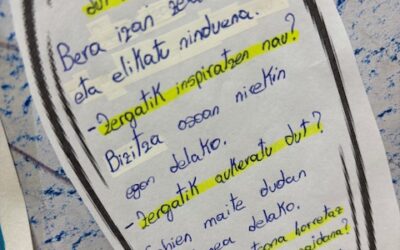 dut
Bera izan zen
eta elikatu ninduena.
-Zergatik inspiratzen nau?
Bizitza osoan nirekin
egon delako.
-Zergatik aukeratu dut?
maite dudan
delako.
horretaz